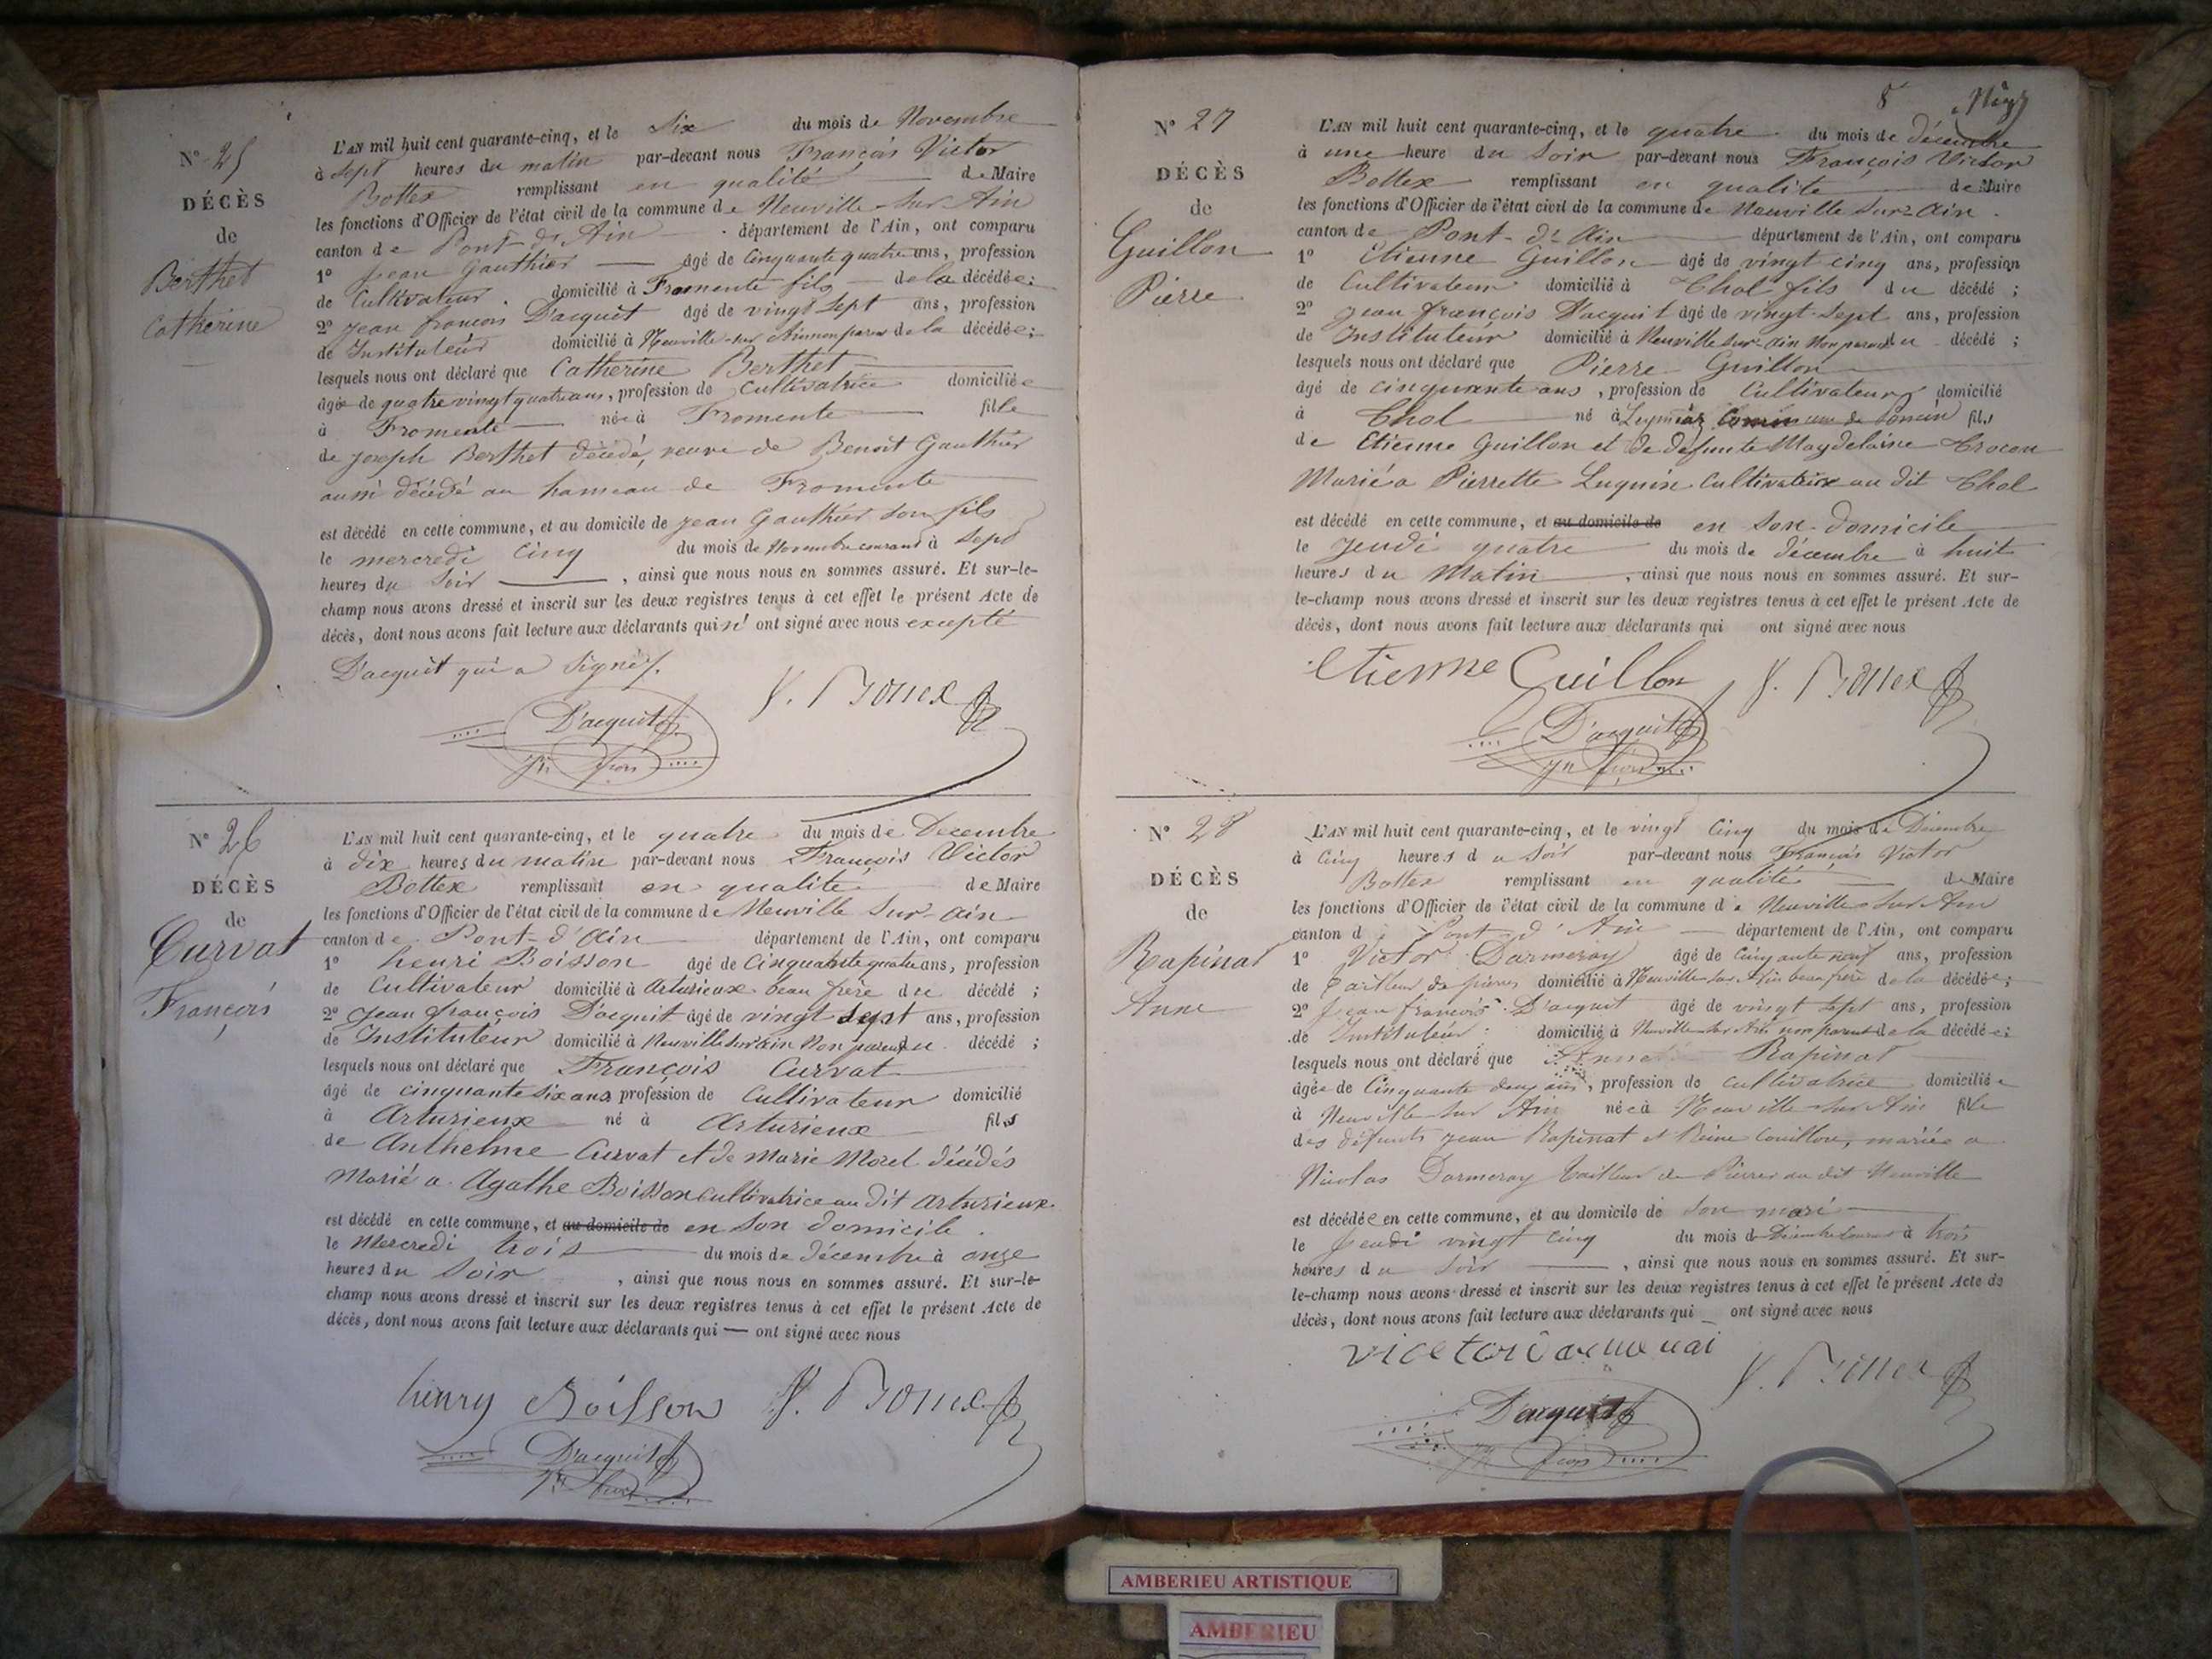 N° 25
DÉCÈS
de
Berthet
Catherine
L'AN mil huit cent quarante-cinq, et le Six du mois de Novembre
à Sept heures du matin par-devant nous François Victor
Bottex remplissant en qualité de Maire
les fonctions d'Officier de l'état civil de la commune de Neuville sur Ain
canton de Pont d'Ain département de l'Ain, ont comparu
1° Jean Gauthier âgé de Cinquante quatre ans, profession
de Cultivateur domicilié à Fromente fils de la décédée;
2° Jean françois D'acquit âgé de vingt Sept ans, profession
de Instituteur domicilié à Neuville sur Ain non parent de la décédée;
lesquels nous ont déclaré que Catherine Berthet
âgée de quatre vingt quatre ans, profession de Cultivatrice domiciliée
à Fromente née à Fromente fille
de Joseph Berthet décédé, veuve de Benoît Gauthier
aussi décédé au hameau de Fromente
est décédé en cette commune, et au domicile de Jean Gauthier son fils
le mercredi Cinq du mois de Novembre courant à Sept
heures du Soir , ainsi que nous nous en sommes assuré. Et sur-le-
champ nous avons dressé et inscrit sur les deux registres tenus à cet effet le présent Acte de
décès, dont nous avons fait lecture aux déclarants qui n' ont signé avec nous excepté
D'acquit qui a Signé.
V. Bottex
D'acquit
Jn fçois
N° 26
DÉCÈS
de
Curvat
François
L'AN mil huit cent quarante-cinq, et le quatre du mois de Decembre
à dix heures du matin par-devant nous François Victor
Bottex remplissant en qualité de Maire
les fonctions d'Officier de l'état civil de la commune de Neuville Sur-Ain
canton de Pont-d'Ain département de l'Ain, ont comparu
1° henri Boisson âgé de Cinquante quatre ans, profession
de Cultivateur domicilié à Arturieux beau frère du décédé;
2° Jean françois D'acquit âgé de vingt Sept ans, profession
de Instituteur domicilié à Neuville Sur ain Non parent du décédé;
lesquels nous ont déclaré que François Curvat
âgé de cinquante Six ans profession de Cultivateur domicilié
à Arturieux né à Arturieux fils
de Anthelme Curvat et de Marie Morel décédés
Marié a Agathe Boisson Cultivatrice au dit Arturieux
est décédé en cette commune, et au domicile de en Son domicile.
le Mercredi trois du mois de décembre à onze
heures du Soir , ainsi que nous nous en sommes assuré. Et sur-le-
champ nous avons dressé et inscrit sur les deux registres tenus à cet effet le présent Acte de
décès, dont nous avons fait lecture aux déclarants qui — ont signé avec nous
henry Boisson V. Bottex
D'acquit
Jn fçois
8
N° 27
DÉCÈS
de
Guillon
Pierre
L'AN mil huit cent quarante-cinq, et le quatre du mois de décembre
à une heure du Soir par-devant nous François Victor
Bottex remplissant en qualité de Maire
les fonctions d'Officier de l'état civil de la commune de Neuville Sur-Ain.
canton de Pont-d'Ain département de l'Ain, ont comparu
1° Etienne Guillon âgé de vingt cinq ans, profession
de Cultivateur domicilié à Chol fils du décédé;
2° Jean françois D'acquit âgé de vingt Sept ans, profession
de Instituteur domicilié à Neuville Sur-Ain Non parent du décédé;
lesquels nous ont déclaré que Pierre Guillon
âgé de cinquante ans, profession de Cultivateur domicilié
à Chol né à Leymiaz Commune de fils
de Etienne Guillon et de defunte Magdelaine Crocon
Marié a Pierrette Luquin Cultivatrice au dit Chol
est décédé en cette commune, et au domicile de en Son domicile
le Jeudi quatre du mois de décembre à huit
heures du Matin , ainsi que nous nous en sommes assuré. Et sur-
le-champ nous avons dressé et inscrit sur les deux registres tenus à cet effet le présent Acte de
décès, dont nous avons fait lecture aux déclarants qui ont signé avec nous
Etienne Guillon V. Bottex
D'acquit
Jn fçois
N° 28
DÉCÈS
de
Rapinat
Anne
L'AN mil huit cent quarante-cinq, et le vingt Cinq du mois de Décembre
à Cinq heures du Soir par-devant nous François Victor
Bottex remplissant en qualité de Maire
les fonctions d'Officier de l'état civil de la commune de Neuville Sur Ain
canton d Pont d'Ain département de l'Ain, ont comparu
1° Victor Darmeray âgé de Cinquante neuf ans, profession
de Tailleur de pierres domicilié à Neuville sur Ain beau frère de la décédée;
2° Jean françois D'acquit âgé de vingt Sept ans, profession
de Instituteur domicilié à Neuville Sur Ain non parent de la décédée;
lesquels nous ont déclaré que Anne Rapinat
âgée de Cinquante deux ans, profession de Cultivatrice domiciliée
à Neuville sur Ain née à Neuville sur Ain fille
des défunts Jean Rapinat et Reine Couillon, mariée a
Nicolas Darmeray tailleur de Pierres au dit Neuville
est décédée en cette commune, et au domicile de Son mari
le Jeudi vingt Cinq du mois de Décembre courant à trois
heures du Soir , ainsi que nous nous en sommes assuré. Et sur-
le-champ nous avons dressé et inscrit sur les deux registres tenus à cet effet le présent Acte de
décès, dont nous avons fait lecture aux déclarants qui ont signé avec nous
V. Bottex
D'acquit
Jn fçois
AMBERIEU ARTISTIQUE
AMBERIEU